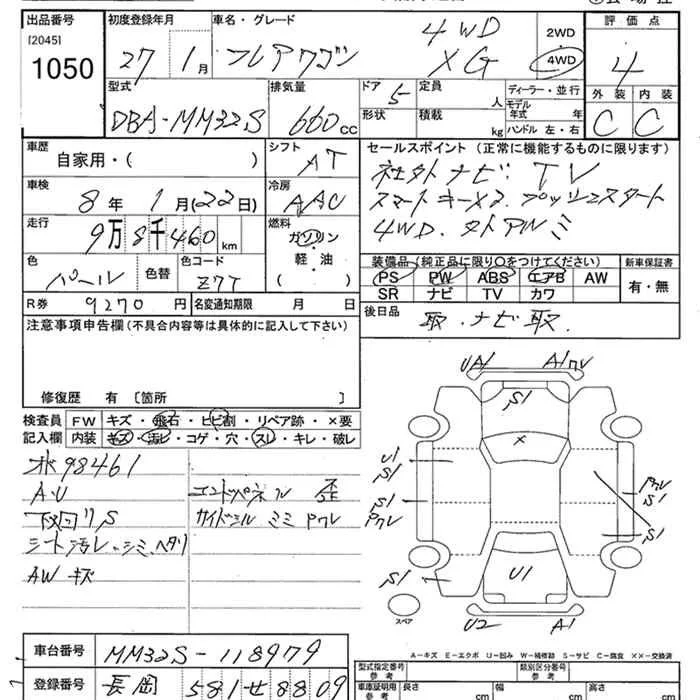 出品番号 初度登録年月 車名・グレード 評価点
[2045]
1050
27 1月 フレアワゴン 4WD XG
2WD
4WD
4
型式 排気量 ドア 定員 ディーラー・並行 外装 内装
DBA-MM32S 660cc 5 人
モデル年式 年
形状 積載 kg ハンドル 左・右
C C
車歴 シフト セールスポイント(正常に機能するものに限ります)
自家用・( ) AT 社外ナビ. TV
車検 冷房 スマートキー×2. プッシュスタート
8年 1月(22日) AAC 4WD.
走行 燃料
9万8千460km ガソリン・軽・油 ( )
装備品(純正品に限り○をつけてください) 新車保証書
色 色替 色コード
パール Z7T
PS PW ABS エアB AW 有・無
SR ナビ TV カワ
R券 9270円 名変通知期限 月 日
後日品 取. ナビ取.
注意事項申告欄(不具合内容等は具体的に記入して下さい)
修復歴 有 〔箇所 〕
検査員記入欄 FW キズ・飛石・ヒビ割・リペア跡・×要
内装 キズ・汚レ・コゲ・穴・スレ・キレ・破レ
98461
A.U エンドパネル 歪
下回リS サイドシル ミミ Pクレ
シート汚レ.シミ.ヘタリ
AW キズ
UA1 A1クレ
S1
×
U1
S1
S1
Pクレ
Pクレ
S1
S1
S1
U1
スペア
U2 A1
A=キズ E=エクボ U=凹み W=補修跡 S=サビ C=腐食 ××=交換済
車台番号 MM32S-118979
型式指定番号 参考 類別区分番号 参考
登録番号 長岡 581せ8809
車庫証明用 参考 長さ cm 幅 cm 高さ cm